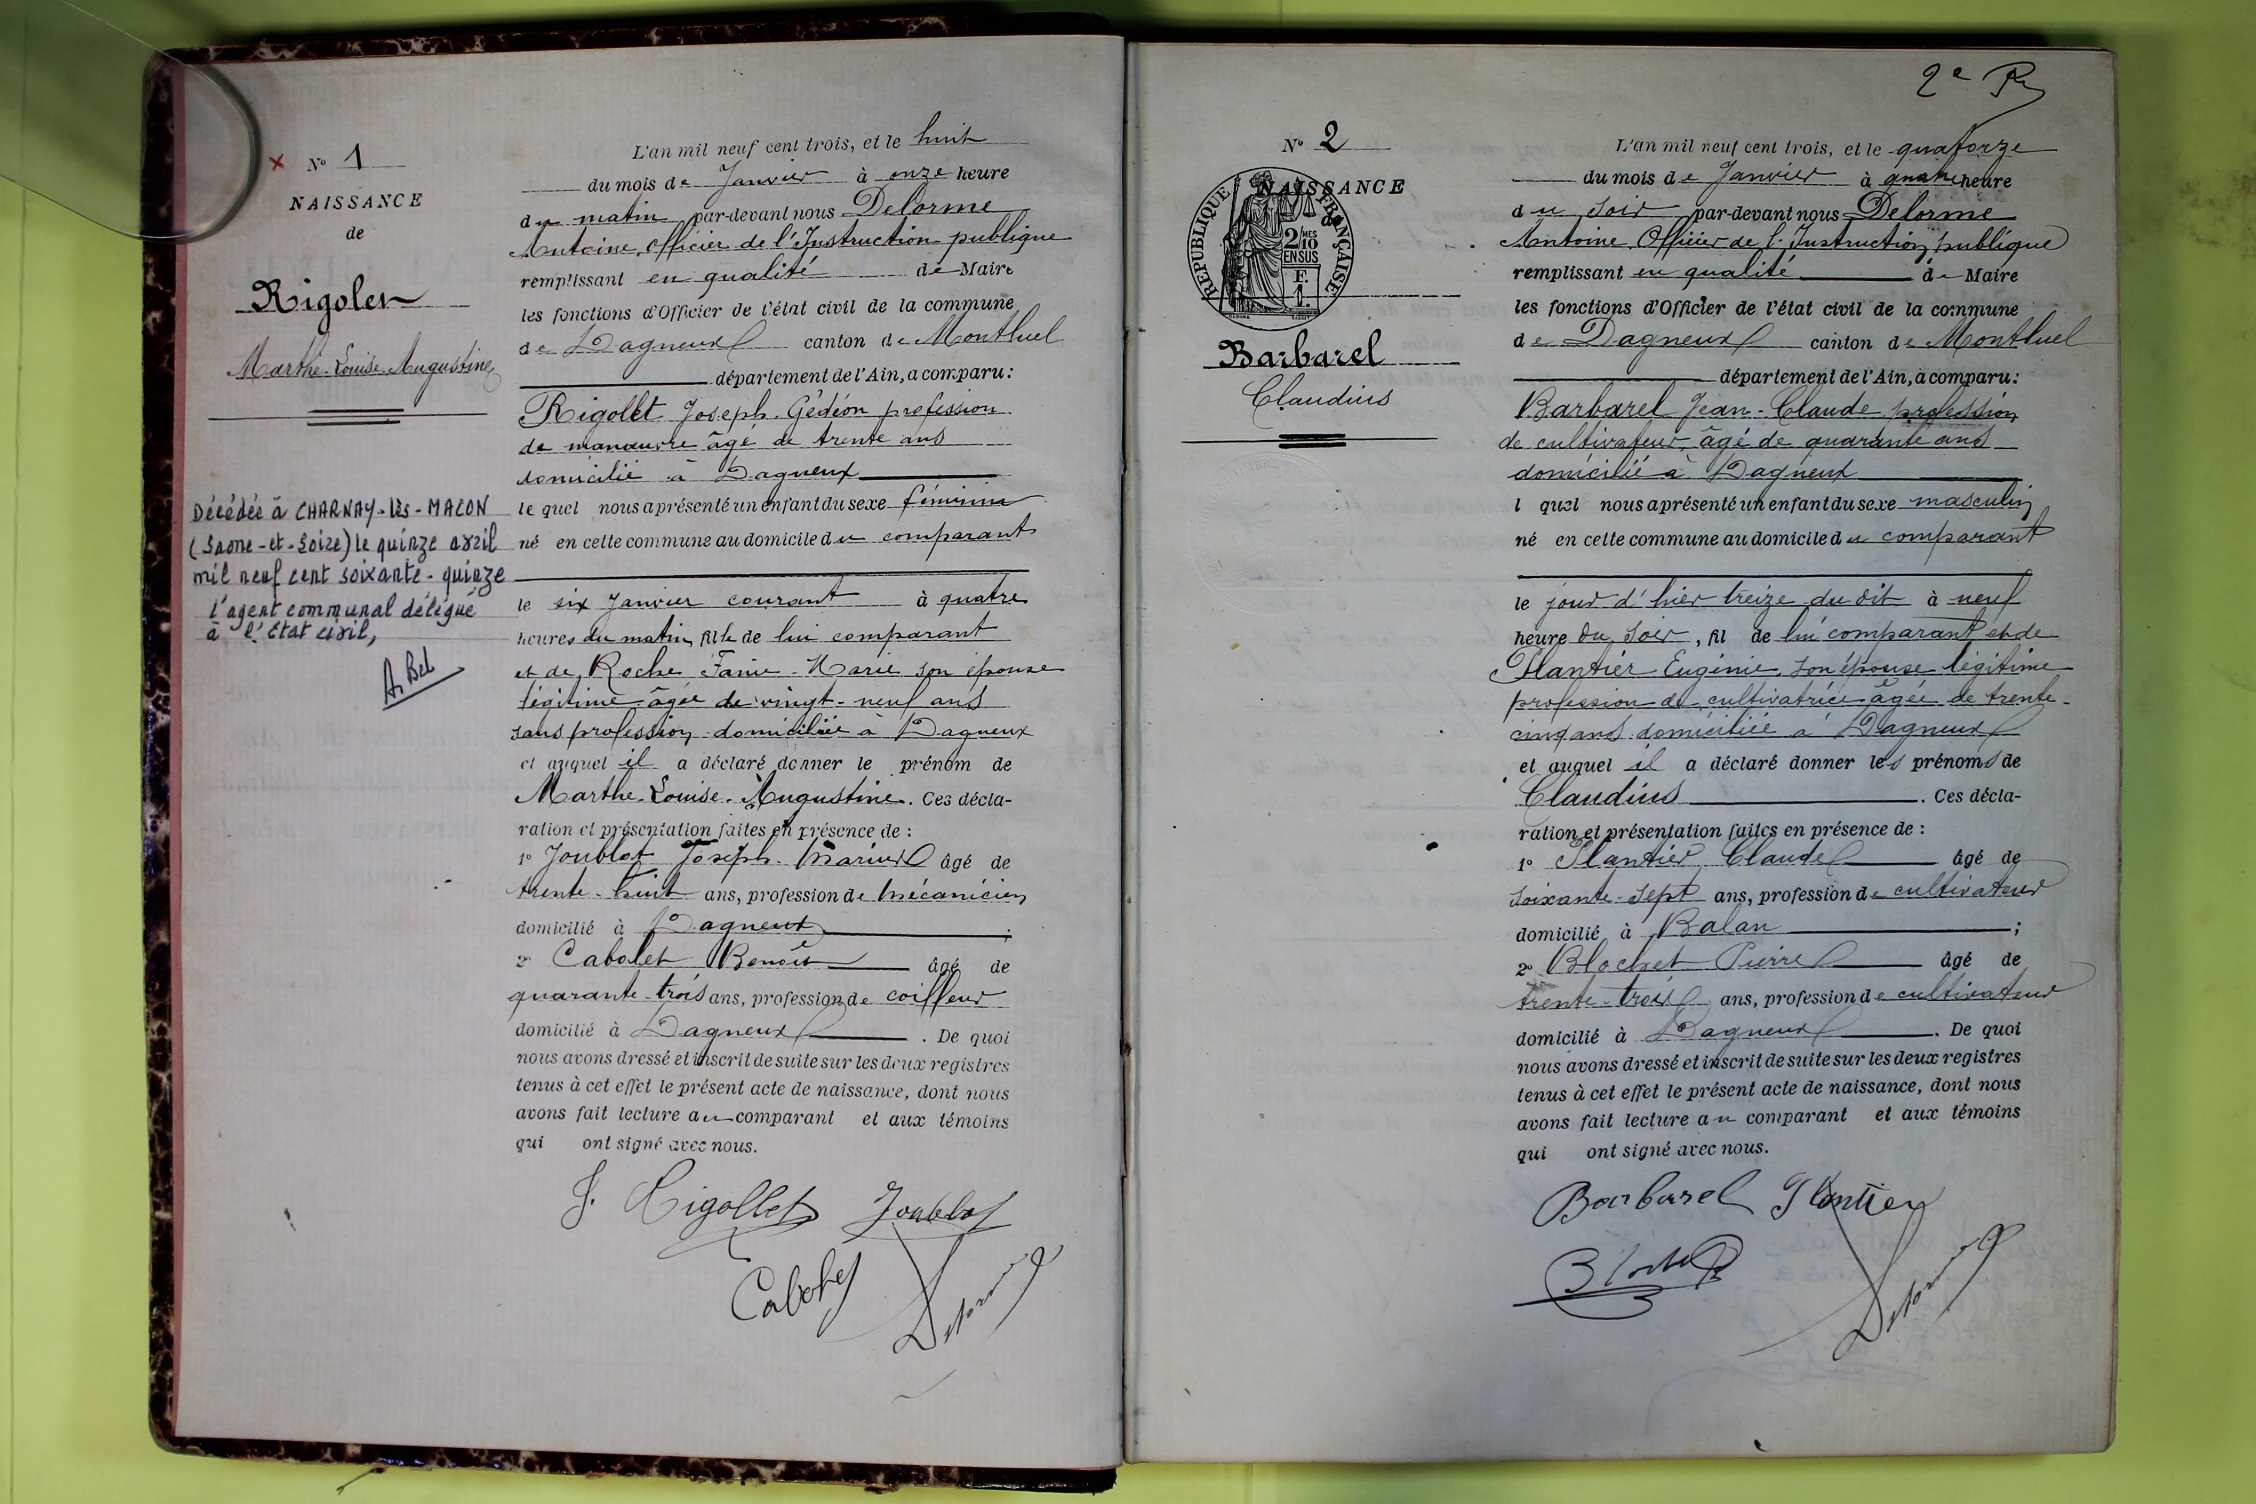 × N° 1
NAISSANCE
de
Rigolet
Marthe-Louise-Augustine
Décédée à CHARNAY-lès-MACON
(Saone-et-Loire) le quinze avril
mil neuf cent soixante-quinze
l'agent communal délégué
à l'état civil,
A. Bel
L'an mil neuf cent trois, et le huit
du mois de Janvier à onze heure
du matin par-devant nous Delorme
Antoine, officier de l'Instruction publique
remplissant en qualité de Maire
les fonctions d'Officier de l'état civil de la commune
de Dagneux canton de Montluel
département de l'Ain, a comparu:
Rigollet Joseph. Gédéon profession
de manœuvre âgé de trente ans
domicilié à Dagneux
le quel nous a présenté un enfant du sexe féminin
né en cette commune au domicile du comparant
le six Janvier courant à quatre
heures du matin, fille de lui comparant
et de Roche Fanie-Marie son épouse
légitime âgée de vingt-neuf ans
sans profession domiciliée à Dagneux
et auquel il a déclaré donner le prénom de
Marthe-Louise-Augustine. Ces décla-
ration et présentation faites en présence de :
1° Joublot Joseph-Marius âgé de
trente-huit ans, profession de mécanicien
domicilié à Dagneux ;
2° Cabolet Benoît âgé de
quarante-trois ans, profession de coiffeur
domicilié à Dagneux . De quoi
nous avons dressé et inscrit de suite sur les deux registres
tenus à cet effet le présent acte de naissance, dont nous
avons fait lecture au comparant et aux témoins
qui ont signé avec nous.
J. Rigollet Joublot
Cabolet Delorme
2e R
N° 2
NAISSANCE
de
RÉPUBLIQUE FRANÇAISE
2/10 MES
EN SUS
F.
1.
Barbarel
Claudius
L'an mil neuf cent trois, et le quatorze
du mois de Janvier à quatre heure
du soir par-devant nous Delorme
Antoine, Officier de l'Instruction publique
remplissant en qualité de Maire
les fonctions d'Officier de l'état civil de la commune
de Dagneux canton de Montluel
département de l'Ain, a comparu:
Barbarel Jean-Claude profession
de cultivateur, âgé de quarante ans
domicilié à Dagneux
l quel nous a présenté un enfant du sexe masculin
né en cette commune au domicile du comparant
le jour d'hier treize du dit à neuf
heure du soir, fil de lui comparant et de
Plantier Eugénie, son épouse légitime
profession de cultivatrice âgée de trente-
cinq ans domiciliée à Dagneux
et auquel il a déclaré donner les prénoms de
Claudius . Ces décla-
ration et présentation faites en présence de :
1° Plantier Claude âgé de
soixante-sept ans, profession de cultivateur
domicilié à Balan ;
2° Blochet Pierre âgé de
trente-trois ans, profession de cultivateur
domicilié à Dagneux . De quoi
nous avons dressé et inscrit de suite sur les deux registres
tenus à cet effet le présent acte de naissance, dont nous
avons fait lecture au comparant et aux témoins
qui ont signé avec nous.
Barbarel Plantier
Blochet Delorme